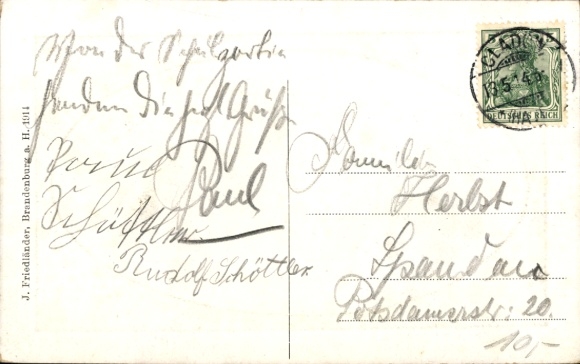 Von der Schulpartie
senden die herzl. Grüße
Paul
Schöttler
Rudolf Schöttler
J. Friedländer, Brandenburg a. H. 1914
GLADOW
13.5.14.
DEUTSCHES REICH
Familie
Herbst
Spandau
Potsdamerstr: 20.
10,-